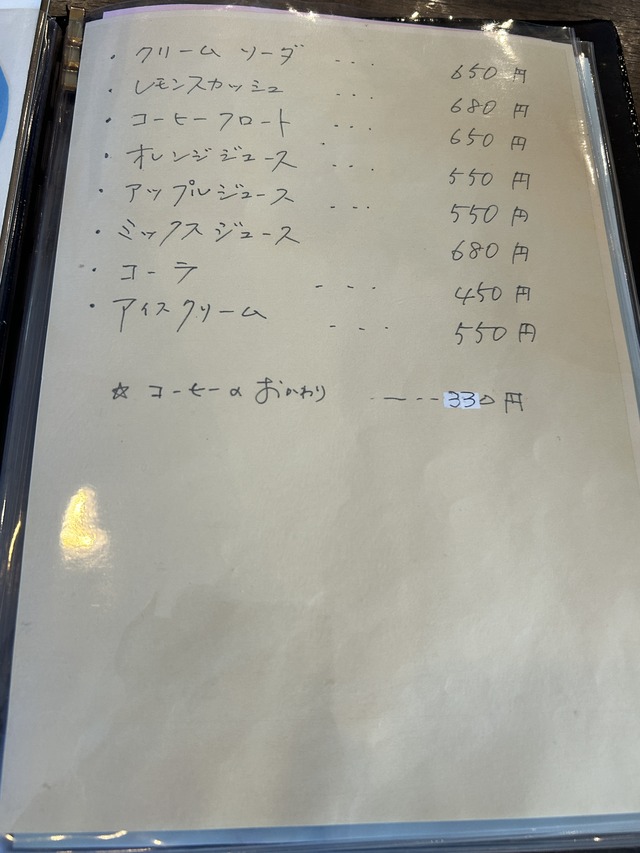 ・クリームソーダ ... 650円
・レモンスカッシュ ... 680円
・コーヒーフロート ... 650円
・オレンジジュース ... 550円
・アップルジュース ... 550円
・ミックスジュース 680円
・コーラ ... 450円
・アイスクリーム .... 550円
☆ コーヒーのおかわり ---- 330円